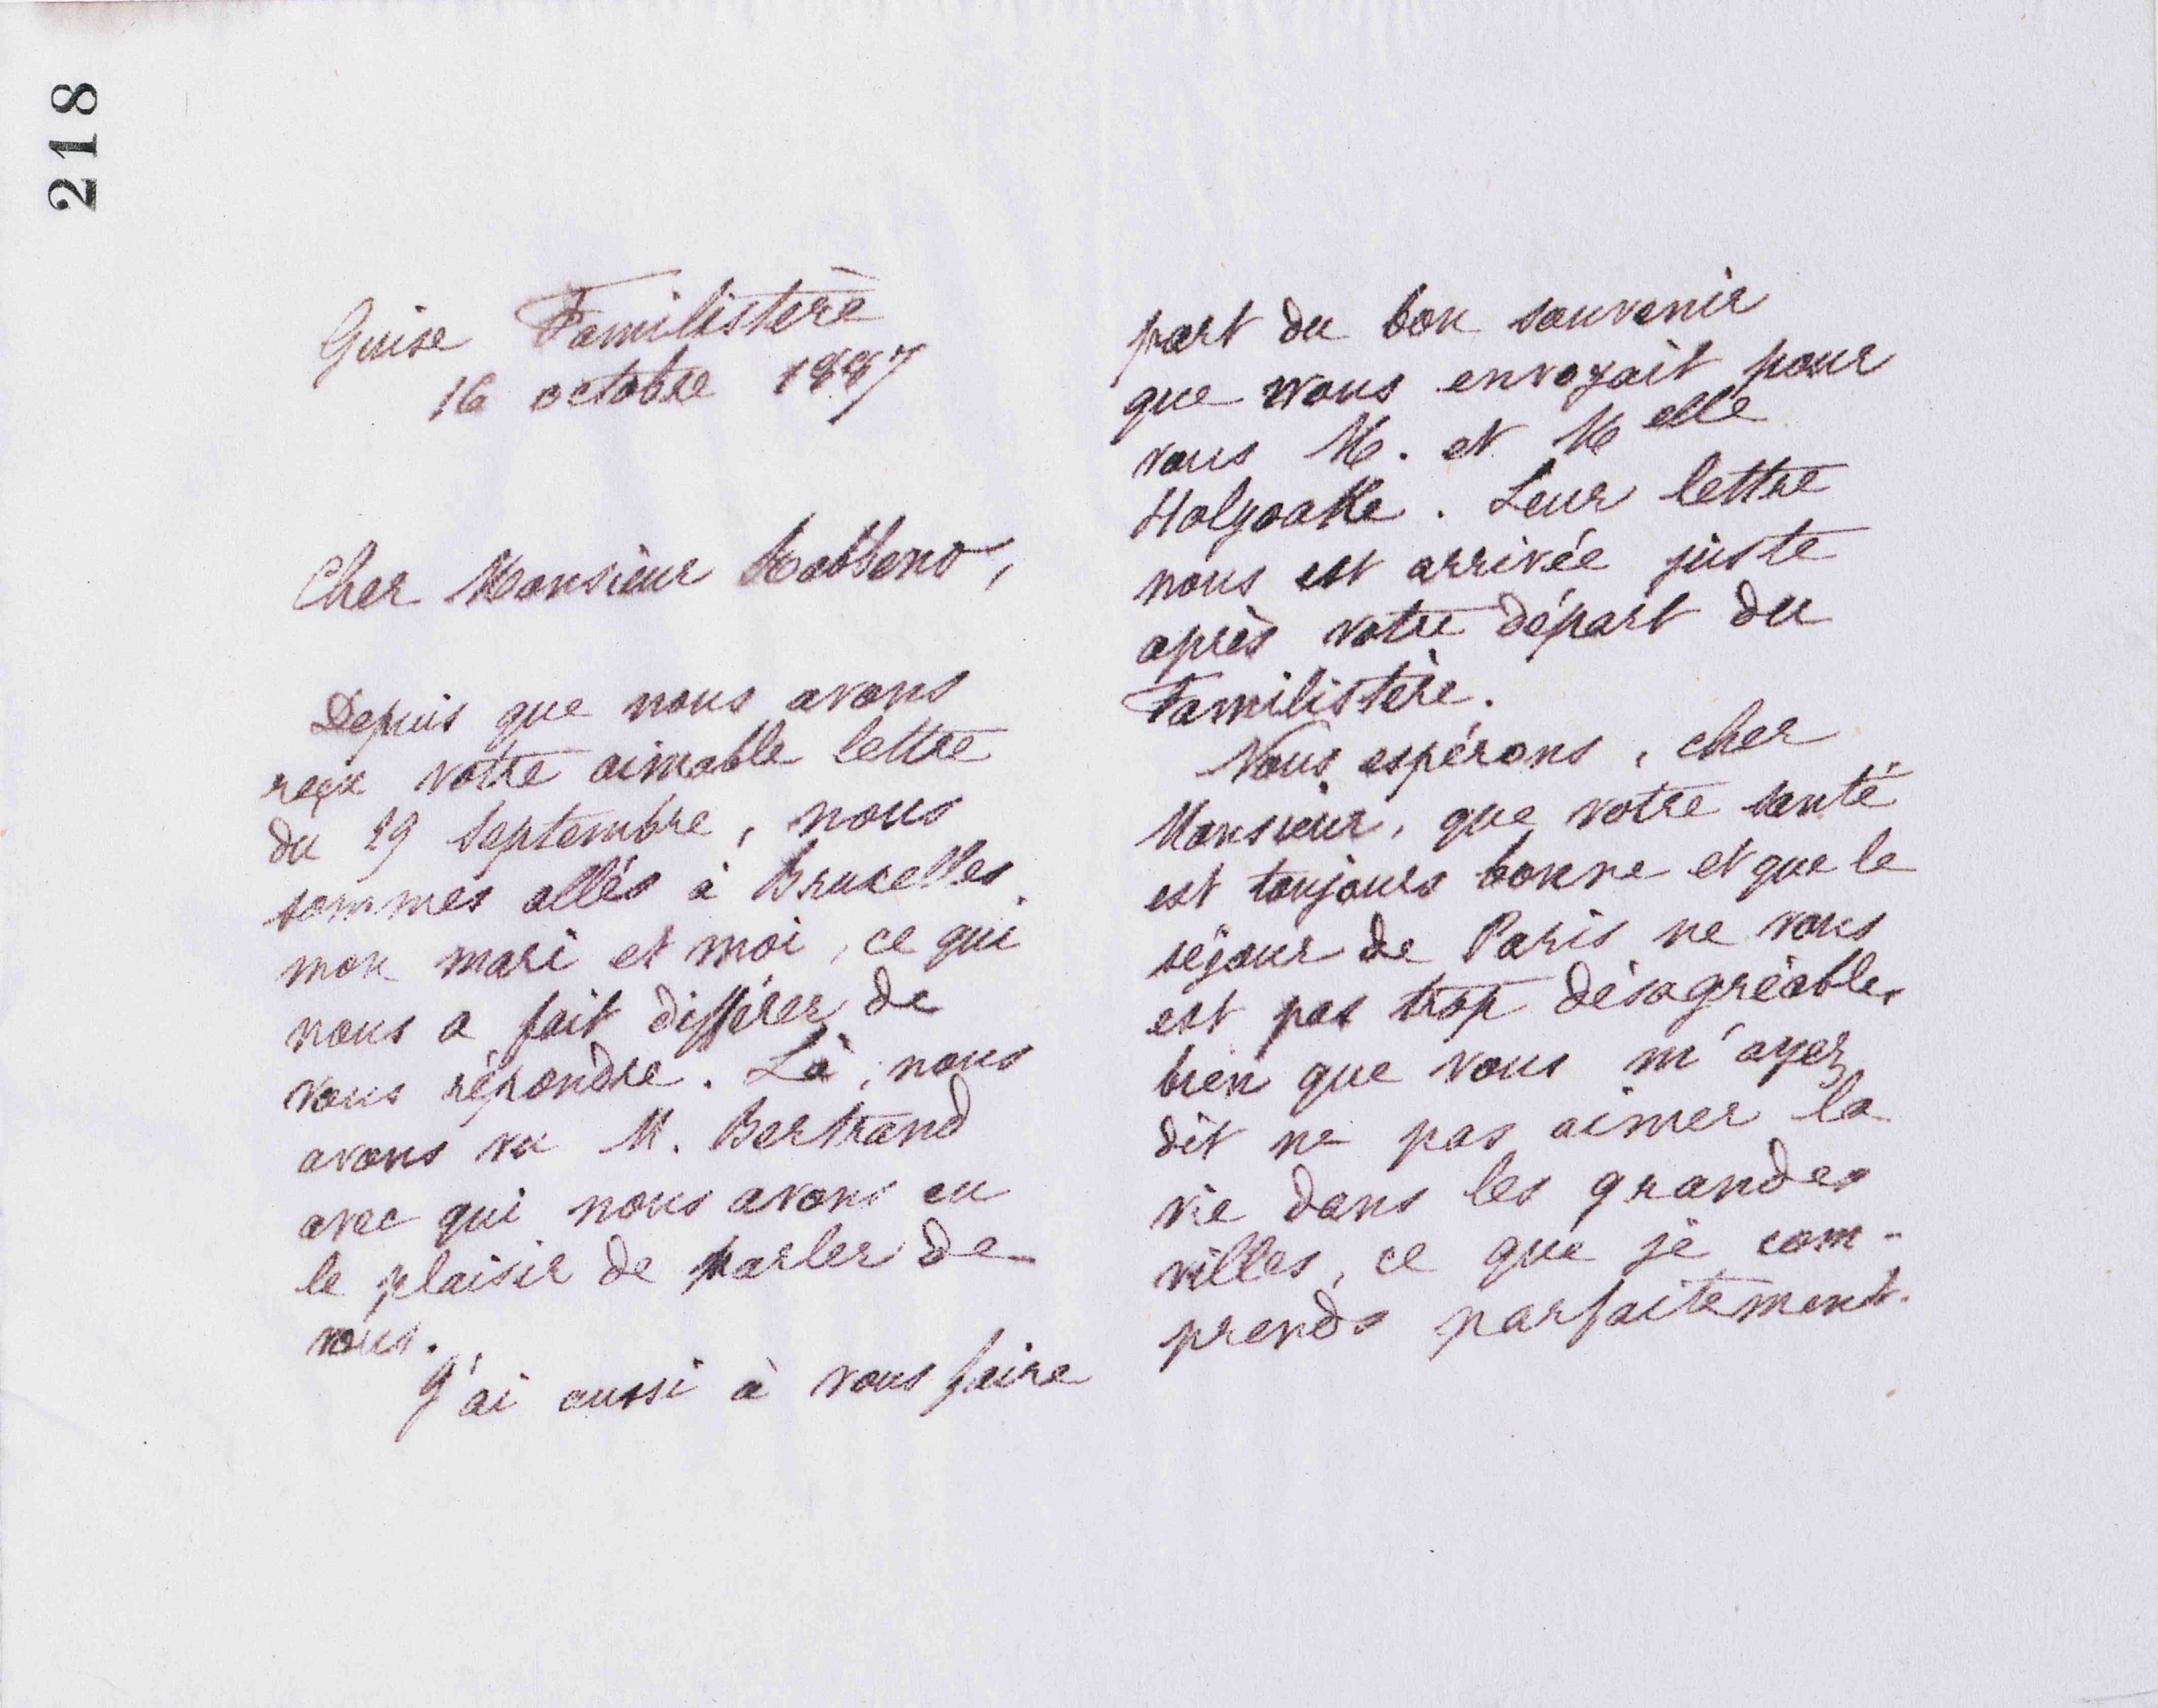 218
Guise Familistère
16 octobre 1887
Cher Monsieur Rabbeno,
Depuis que nous avons
reçu votre aimable lettre
du 29 septembre, nous
sommes allés à Bruxelles,
mon mari et moi, ce qui
nous a fait différer de
vous répondre. Là, nous
avons vu M. Bertrand
avec qui nous avons eu
le plaisir de parler de
vous.
J'ai aussi à vous faire
part du bon souvenir
que nous envoyait pour
vous M. et Melle
Holyoake. Leur lettre
nous est arrivée juste
après votre départ du
Familistère.
Nous espérons, cher
Monsieur, que votre santé
est toujours bonne et que le
séjour de Paris ne vous
est pas trop désagréable,
bien que vous m'ayez
dit ne pas aimer la
vie dans les grandes
villes, ce que je com-
prends parfaitement.